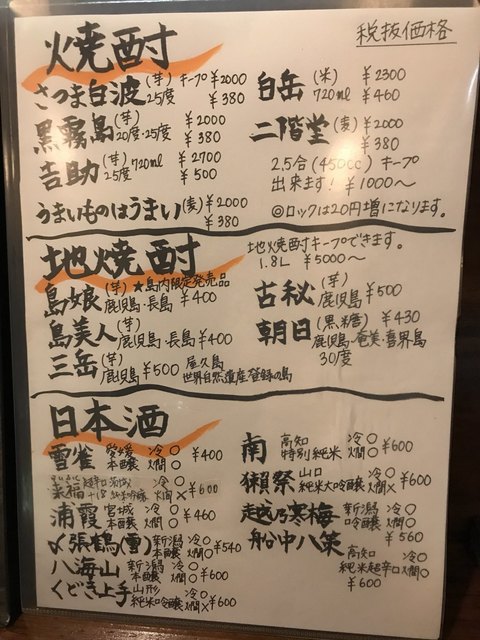 焼酎
税抜価格
さつま白波(芋)25度 キープ¥2000 ¥380
黒霧島(芋)20度・25度 ¥2000 ¥380
吉助(芋)25度 720ml ¥2700 ¥500
うまいものはうまい(麦)¥2000 ¥380
白岳(米)720ml ¥2300 ¥460
二階堂(麦)¥2000 ¥380
2.5合(450cc)キープ
出来ます! ¥1000〜
◎ロックは20円増になります。
地焼酎
地焼酎キープできます。
1.8L ¥5000〜
島娘(芋)★島内限定発売品
鹿児島・長島 ¥400
島美人(芋)鹿児島・長島 ¥400
三岳(芋)鹿児島 ¥500 屋久島
世界自然遺産登録の島
古秘(芋)鹿児島 ¥500
朝日(黒糖)¥430
鹿児島・奄美・喜界島
30度
日本酒
雪雀 愛媛 本醸 冷○ 燗○ ¥400
来福 超辛口 茨城 +18 純米吟醸 冷○ 燗× ¥600
浦霞 宮城 本醸 冷○ 燗○ ¥460
〆張鶴(雪)新潟 本醸 冷○ 燗○ ¥540
八海山 新潟 本醸 冷○ 燗○ ¥600
くどき上手 山形 純米吟醸 冷○ 燗× ¥600
南 高知 特別純米 冷○ 燗○ ¥600
獺祭 山口 純米大吟醸 冷○ 燗× ¥600
越乃寒梅 新潟 吟醸 冷○ 燗○ ¥560
船中八策 高知 純米超辛口 冷○ 燗○
¥600